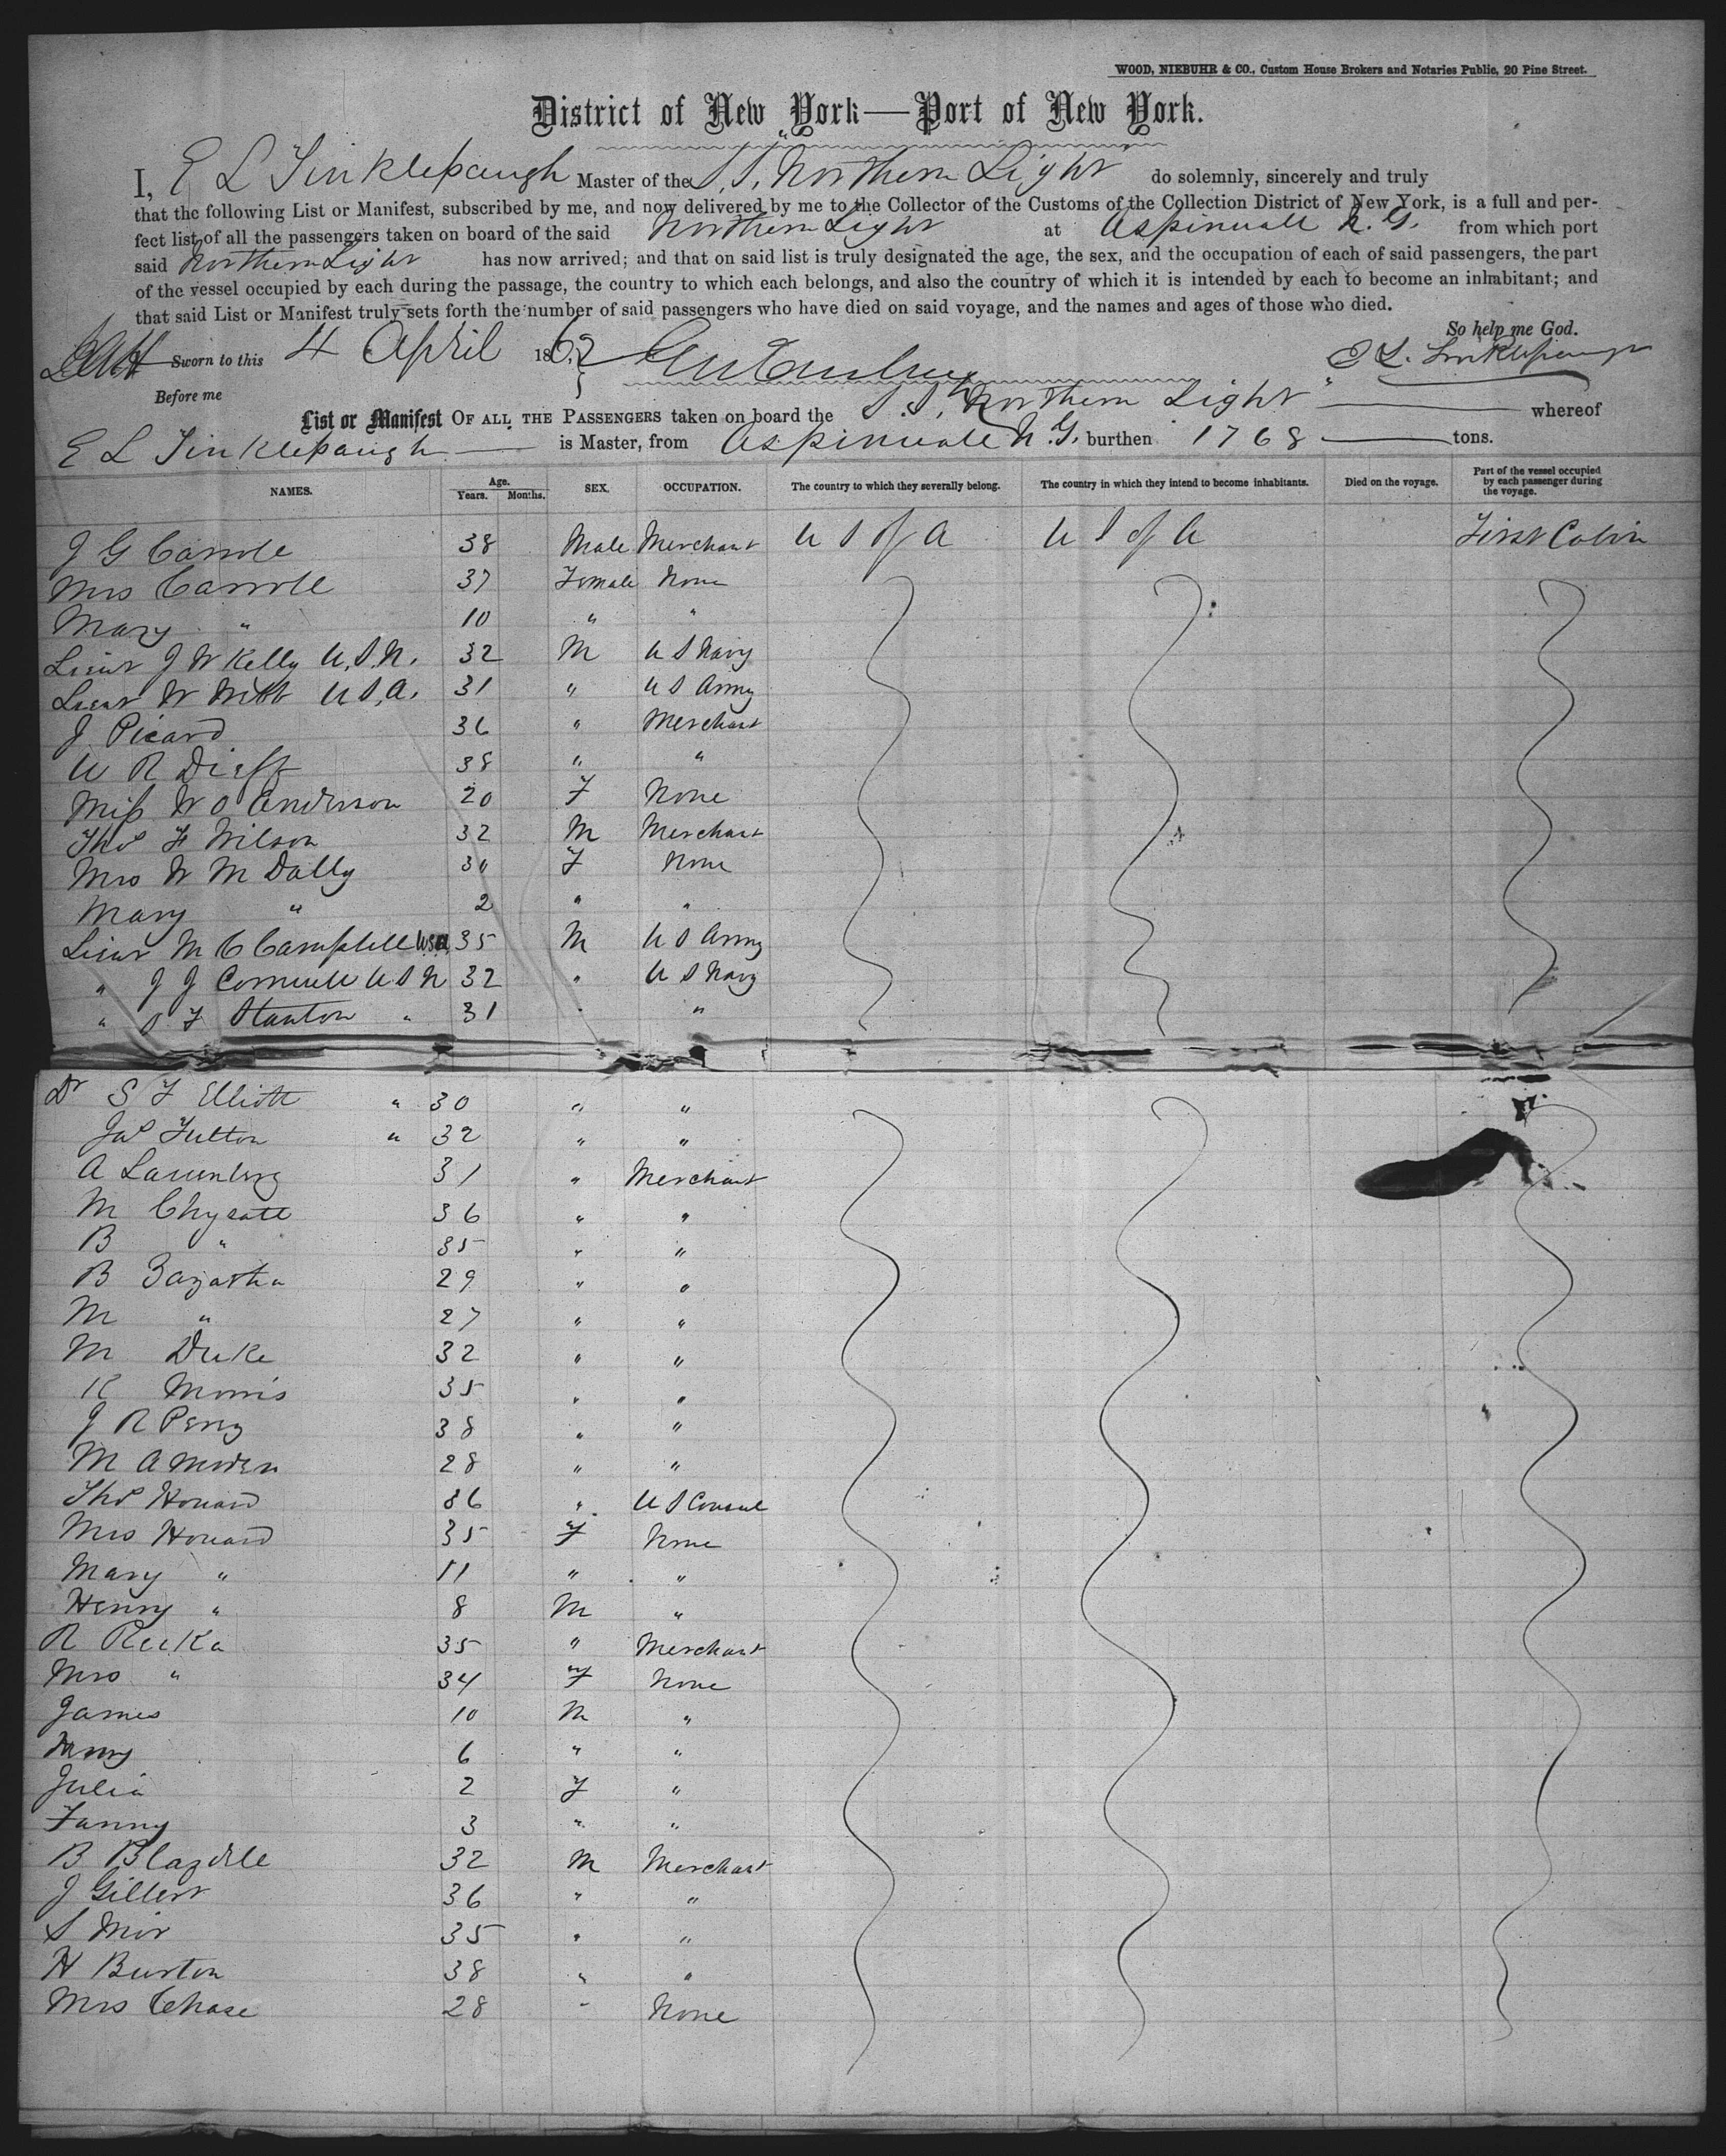 WOOD, NIEBUHR & CO., Custom House Brokers and Notaries Public, 20 Pine Street.
District of New York—Port of New York.
I, E L Tinklepaugh Master of the S.S. "Northern Light" do solemnly, sincerely and truly
that the following List or Manifest, subscribed by me, and now delivered by me to the Collector of the Customs of the Collection District of New York, is a full and per-
fect list of all the passengers taken on board of the said Northern Light at Aspinwall N. G. from which port
said Northern Light has now arrived; and that on said list is truly designated the age, the sex, and the occupation of each of said passengers, the part
of the vessel occupied by each during the passage, the country to which each belongs, and also the country of which it is intended by each to become an inhabitant; and
that said List or Manifest truly sets forth the number of said passengers who have died on said voyage, and the names and ages of those who died.
So help me God.
Sworn to this 4 April 1862 E L. Tinklepaugh
Before me
List or Manifest OF ALL THE PASSENGERS taken on board the S.S. "Northern Light" whereof
E L Tinklepaugh is Master, from Aspinwall N. G. burthen 1768 tons.
NAMES. Age. Years. Months. SEX. OCCUPATION. The country to which they severally belong. The country in which they intend to become inhabitants. Died on the voyage. Part of the vessel occupied by each passenger during the voyage.
J G Carrole 38 Male Merchant U S of A U S of A First Cabin
Mrs Carrole 37 Female None
Mary " 10 " "
Lieut J W Kelly U.S.N. 32 M U S Navy
Lieut W Webb U S.A. 31 " U S Army
J Picard 36 " Merchant
W R 38 " "
Miss W O Anderson 20 F None
Thos H Wilson 32 M Merchant
Mrs W M Dally 30 F None
Mary " 2 " "
Lieut M C Campbell USA 35 M U S Army
" J J Cornwell U S N 32 " U S Navy
" S F Stanton " 31 " "
Dr S F Elliott " 30 " "
Jas Fulton " 32 " "
A 31 " Merchant
M 36 " "
B " 35 " "
B 29 " "
M " 27 " "
M Duke 32 " "
R Morris 35 " "
J R Perry 38 " "
M A 28 " "
Thos Howard 36 " U S Consul
Mrs Howard 35 F None
Mary " 11 " "
Henry " 8 M "
R 35 " Merchant
Mrs " 34 F None
James 10 M "
6 " "
Julia 2 F "
Fanny 3 " "
B 32 M Merchant
J Gillert 36 " "
S 35 " "
H Burton 38 " "
Mrs Chase 28 " None